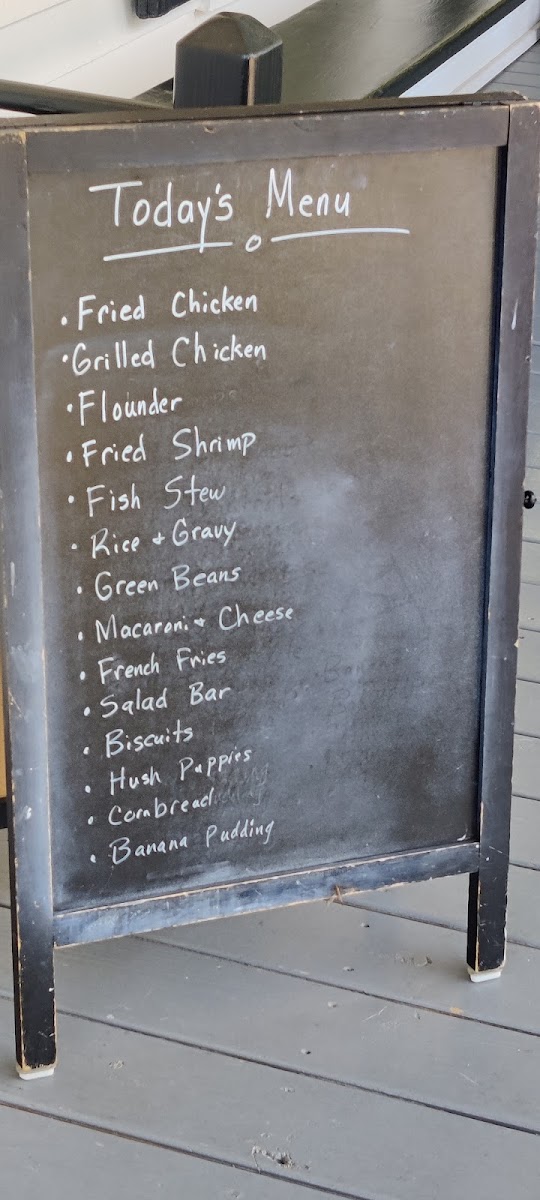 Today's Menu
• Fried Chicken
• Grilled Chicken
• Flounder
• Fried Shrimp
• Fish Stew
• Rice + Gravy
• Green Beans
• Macaroni + Cheese
• French Fries
• Salad Bar
• Biscuits
• Hush Puppies
• Cornbread
• Banana Pudding